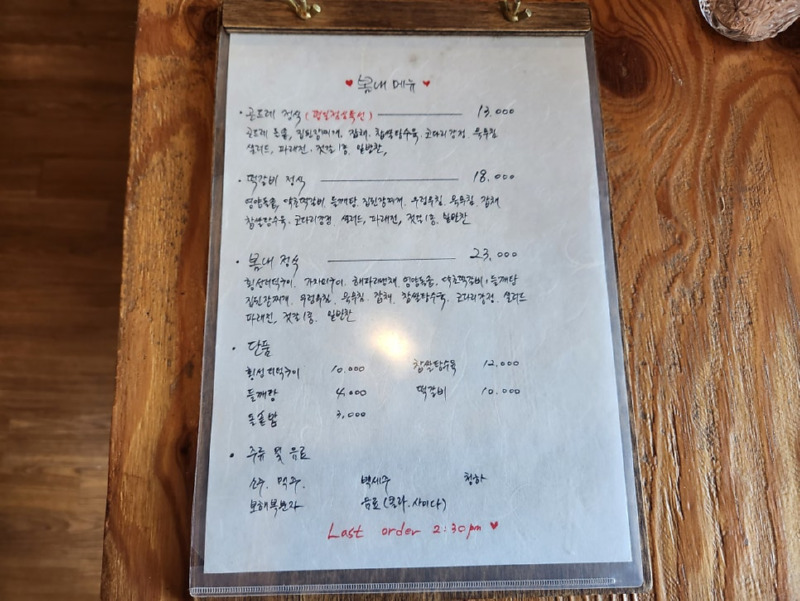 ♥ 봄내 메뉴 ♥
• 곤드레 정식 (평일점심특선) 13,000
곤드레 돌솥, 집된장찌개, 잡채, 찹쌀탕수육, 코다리강정, 육무침
샐러드, 파래전, 젓갈1종, 밑반찬,
• 떡갈비 정식 18,000
영양돌솥, 약초떡갈비, 들깨탕, 집된장찌개, 우렁무침, 육무침, 잡채
찹쌀탕수육, 코다리강정, 샐러드, 파래전, 젓갈1종, 밑반찬
• 봄내 정식 23,000
횡성더덕구이, 가자미구이, 해파리냉채, 영양돌솥, 약초떡갈비, 들깨탕
집된장찌개, 우렁무침, 육무침, 잡채, 찹쌀탕수육, 코다리강정, 샐러드
파래전, 젓갈1종, 밑반찬
• 단품
횡성더덕구이 10,000 찹쌀탕수육 12,000
들깨탕 4,000 떡갈비 10,000
돌솥밥 3,000
• 주류 및 음료
소주, 맥주, 백세주 청하
보해복분자 음료 (콜라, 사이다)
Last order 2:30pm ♥